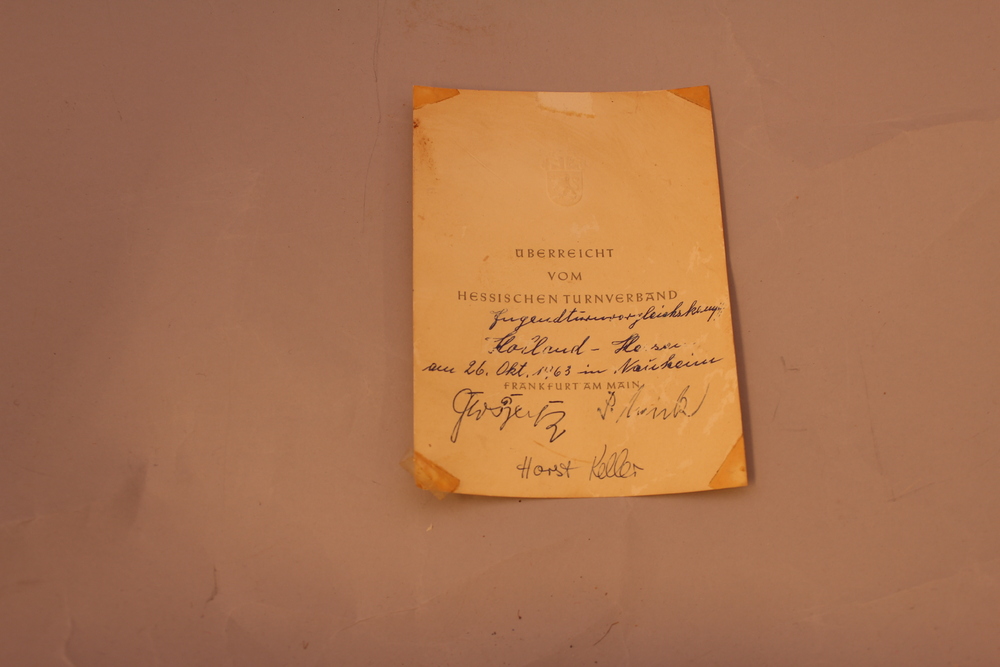 ÜBERREICHT
VOM
HESSISCHEN TURNVERBAND
Jugendturnvergleichskampf
Holland - Hessen
am 26. Okt. 1963 in Nauheim
FRANKFURT AM MAIN
Horst Keller